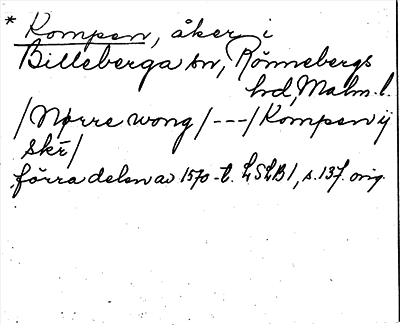 * Kompen, åker i
Billeberga sn, Rönnebergs
hd, Malm. l.
/Nørre wong/---/Kompen ij
skr/
förra delen av 1570-t. LSLB1, s. 137. orig.